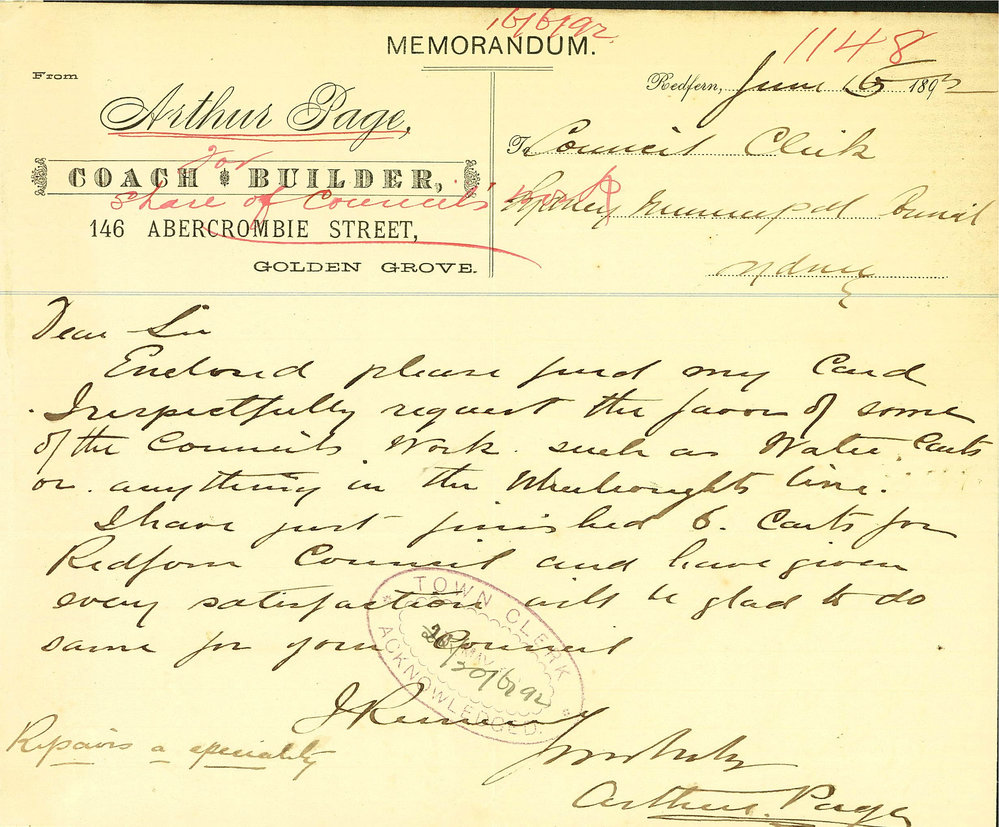 16/6/92
MEMORANDUM.
1148
From
Redfern, June 15 1892
Arthur Page,
To Council Clerk
for
COACH BUILDER,
Share of Council's work
Sydney Municipal Council
146 ABERCROMBIE STREET,
GOLDEN GROVE.
Sydney
Dear Sir
Enclosed please find my Card
I respectfully request the favor of some
of the Councils Work such as Water Carts
or anything in the Wheelwrights line.
I have just finished 6 Carts for
Redfern Council and have given
every satisfaction will be glad to do
same for your Council
TOWN CLERK
20/6/92
ACKNOWLEDGED.
I Remain
Yours truly
Arthur Page
Repairs a speciality